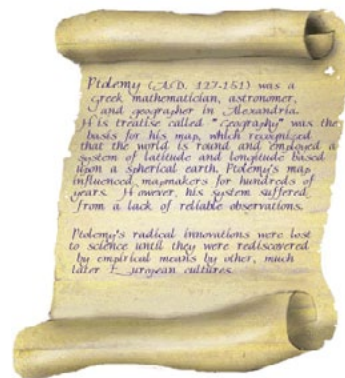 Ptolemy (A.D. 127-151) was a
greek mathematician, astronomer,
and geographer in Alexandria.
His treatise called "Geography" was the
basis for his map, which recognized
that the world is round and employed a
system of latitude and longitude based
upon a spherical earth. Ptolemy's map
influenced mapmakers for hundreds of
years. However, his system suffered
from a lack of reliable observations.
Ptolemy's radical innovations were lost
to science until they were rediscovered
by empirical means by other, much
later European cultures.